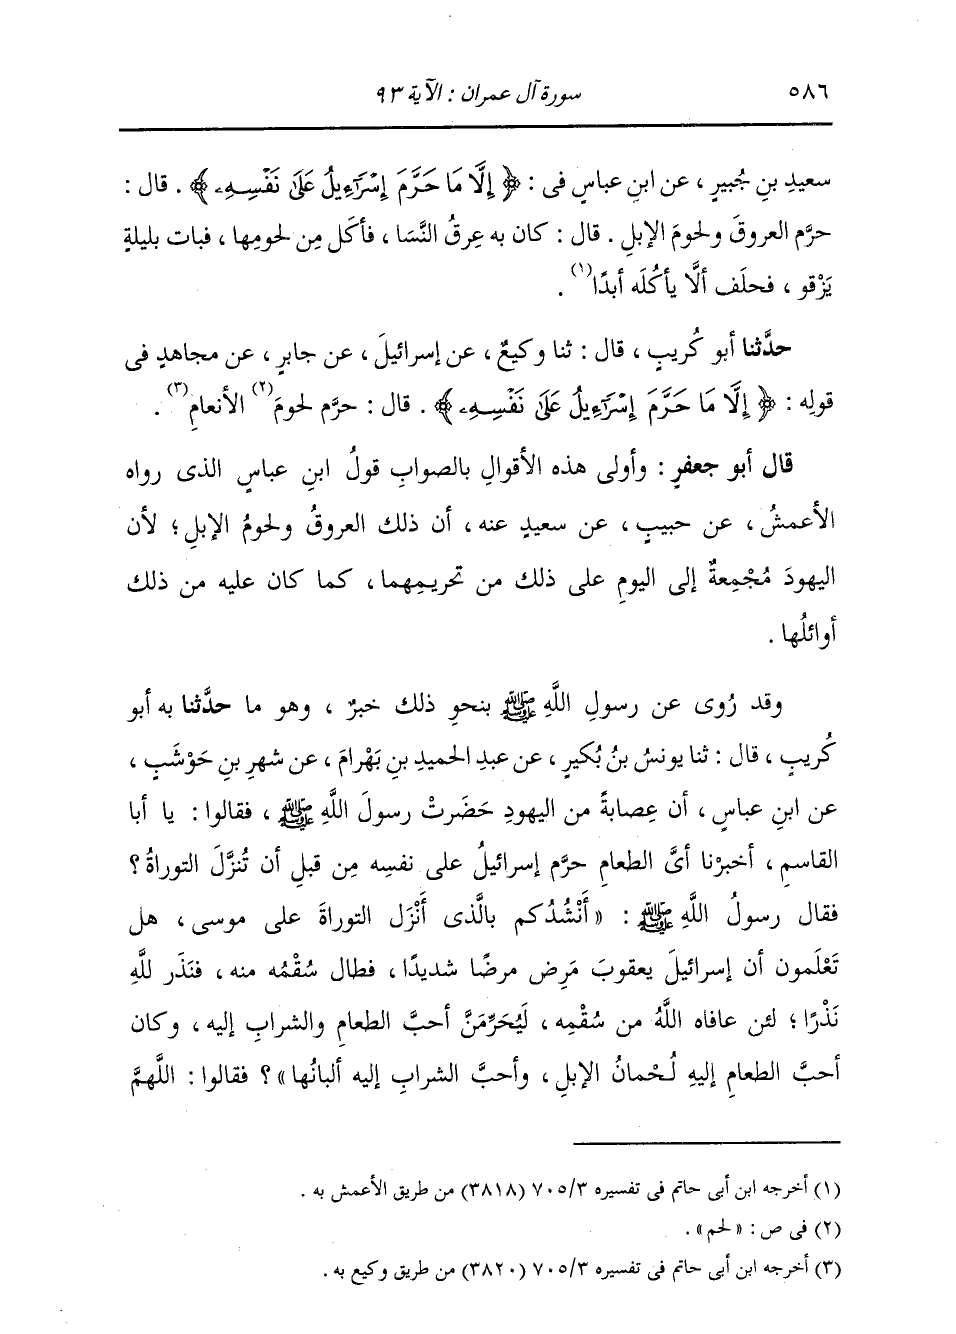 ٥٨٦ سورة آل عمران : الآية ٩٣
سعيدِ بنِ جُبيرٍ ، عن ابنِ عباسٍ فى : ﴿ إِلَّا مَا حَرَّمَ إِسْرَٰٓءِيلُ عَلَىٰ نَفْسِهِۦ ﴾ . قال :
حرَّم العروقَ ولحومَ الإبلِ . قال : كان به عِرقُ النَّسَا ، فأكَل مِن لحومِها ، فبات بليلةٍ
يَزْقو ، فحلَف ألَّا يأكُلَه أبدًا(١) .
حدَّثنا أبو كُريبٍ ، قال : ثنا وكيعٌ ، عن إسرائيلَ ، عن جابرٍ ، عن مجاهدٍ فى
قولِه : ﴿ إِلَّا مَا حَرَّمَ إِسْرَٰٓءِيلُ عَلَىٰ نَفْسِهِۦ ﴾ . قال : حرَّم لحومَ(٢) الأنعامِ(٣) .
قال أبو جعفرٍ : وأولى هذه الأقوالِ بالصوابِ قولُ ابنِ عباسٍ الذى رواه
الأعمشُ ، عن حبيبٍ ، عن سعيدٍ عنه ، أن ذلك العروقُ ولحومُ الإبلِ ؛ لأن
اليهودَ مُجْمِعةٌ إلى اليومِ على ذلك من تحريمِهما ، كما كان عليه من ذلك
أوائلُها .
وقد رُوى عن رسولِ اللَّهِ ﷺ بنحوِ ذلك خبرٌ ، وهو ما حدَّثنا به أبو
كُريبٍ ، قال : ثنا يونسُ بنُ بُكيرٍ ، عن عبدِ الحميدِ بنِ بَهْرامَ ، عن شهرِ بنِ حَوْشَبٍ ،
عن ابنِ عباسٍ ، أن عِصابةً من اليهودِ حَضَرتْ رسولَ اللَّهِ ﷺ ، فقالوا : يا أبا
القاسمِ ، أخبرْنا أىَّ الطعامِ حرَّم إسرائيلُ على نفسِه مِن قبلِ أن تُنزَّلَ التوراةُ ؟
فقال رسولُ اللَّهِ ﷺ : « أَنْشُدُكم بالَّذى أَنْزَل التوراةَ على موسى ، هل
تَعْلَمون أن إسرائيلَ يعقوبَ مَرِض مرضًا شديدًا ، فطال سُقْمُه منه ، فنَذَر للَّهِ
نَذْرًا ؛ لئن عافاه اللَّهُ من سُقْمِه ، لَيُحَرِّمَنَّ أحبَّ الطعامِ والشرابِ إليه ، وكان
أحبَّ الطعامِ إليهِ لُحْمانُ الإبلِ ، وأحبَّ الشرابِ إليه ألبانُها » ؟ فقالوا : اللَّهمَّ
(١) أخرجه ابن أبى حاتم فى تفسيره ٧٠٥/٣ (٣٨١٨) من طريق الأعمش به .
(٢) فى ص : « لحم » .
(٣) أخرجه ابن أبى حاتم فى تفسيره ٧٠٥/٣ (٣٨٢٠) من طريق وكيع به .